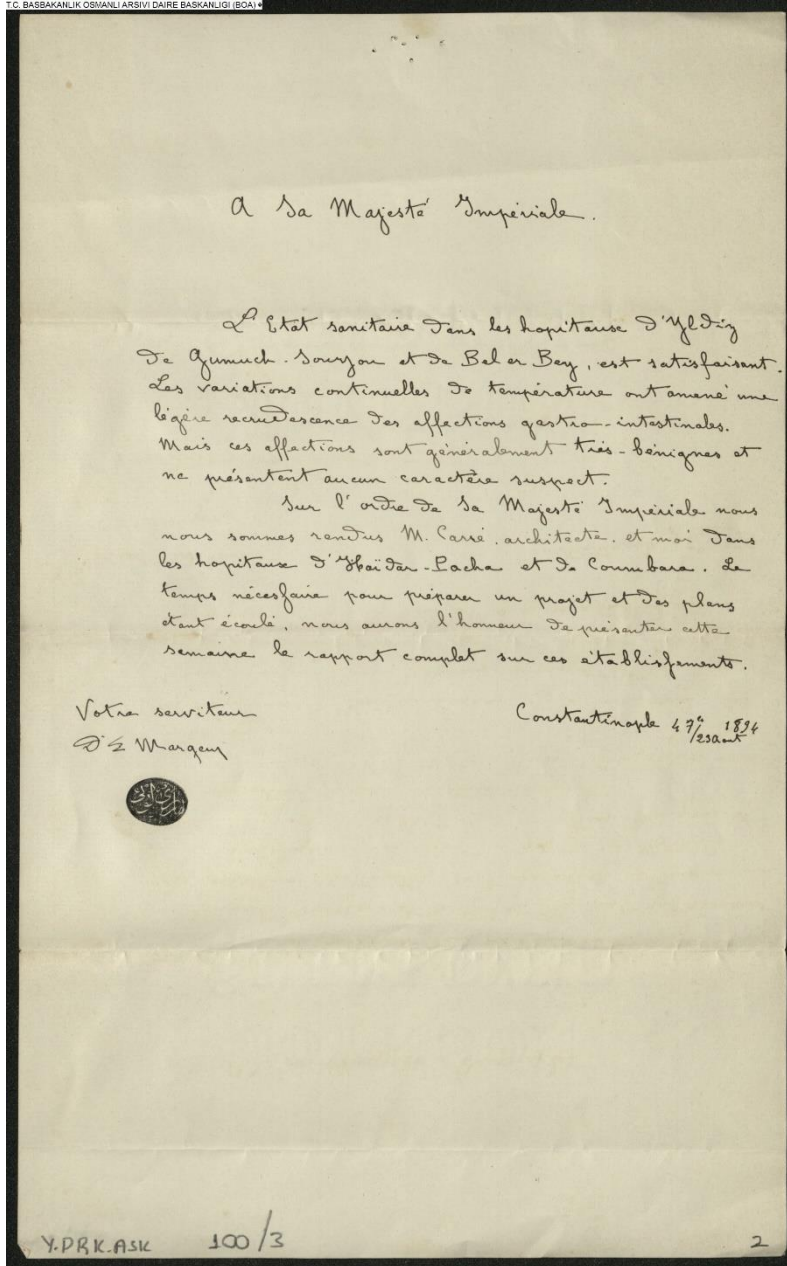 T.C. BASBAKANLIK OSMANLI ARSIVI DAIRE BASKANLIGI (BOA)
A Sa Majesté Impériale.
L'Etat sanitaire dans les hopitause d'Yldiz
de Gumuch-Souyou et de Bel er Bey, est satisfaisant.
Les variations continuelles de température ont amené une
légère recrudescence des affections gastro-intestinales.
Mais ces affections sont généralement très-bénignes et
ne présentent aucun caractère suspect.
Sur l'ordre de Sa Majesté Impériale nous
nous sommes rendus M. Carré, architecte, et moi dans
les hopitause d'Haïdar-Pacha et de Coumbara. Le
temps nécessaire pour préparer un projet et des plans
étant écoulé, nous aurons l'honneur de présenter cette
semaine le rapport complet sur ces établissements.
Votre serviteur
Constantinople 1894
/23 Aout
Dr
Y.PRK.ASK 100/3 2